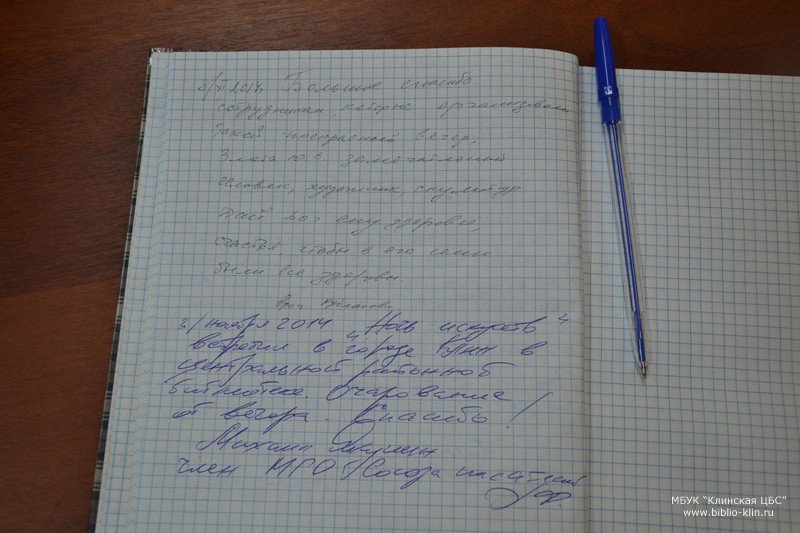 3/XI 2014г. Большое спасибо
сотрудникам, которые организовали
такой прекрасный вечер,
Злота Ю.В. замечательный
человек, художник, скульптор
Дай бог ему здоровья,
счастья, чтобы в его семье
были все здоровы
3/ноября 2014 "Ночь искусств"
встретил в городе Клин в
центральной районной
библиотеке. Очарование
от вечера. Спасибо!
Михаил
член МГО Союза писателей
РФ.
МБУК "Клинская ЦБС"
www.biblio-klin.ru